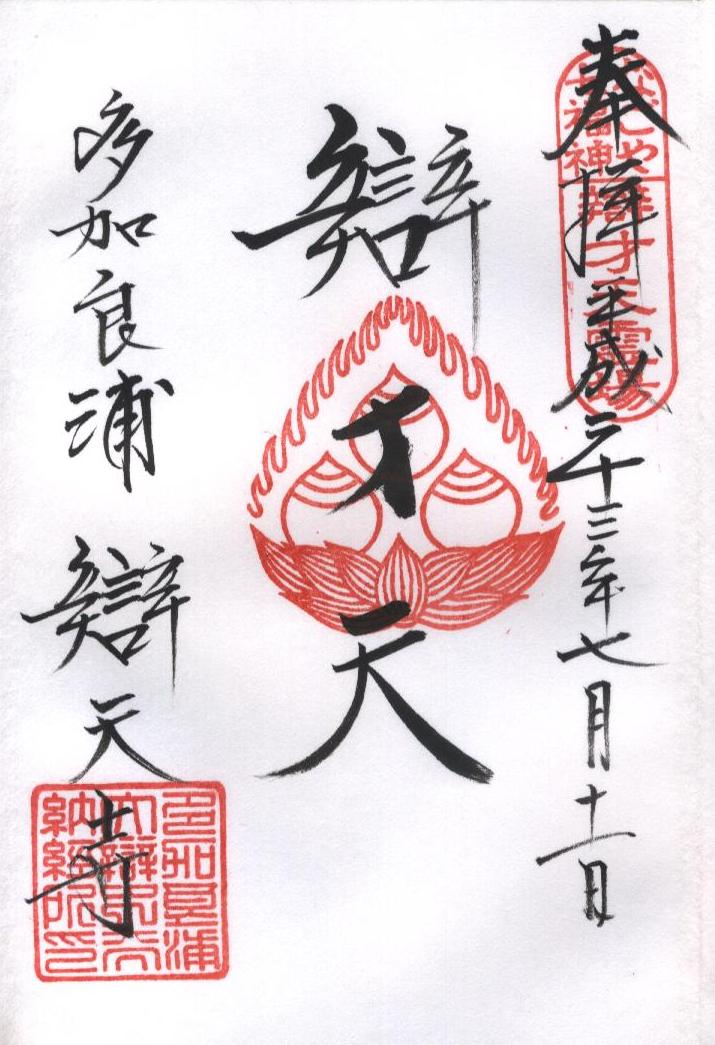 奉拝 平成二十三年七月十一日
なごや
七福神
辯才天靈場
辯才天
多加良浦 辯天寺
多加良浦
納經所印